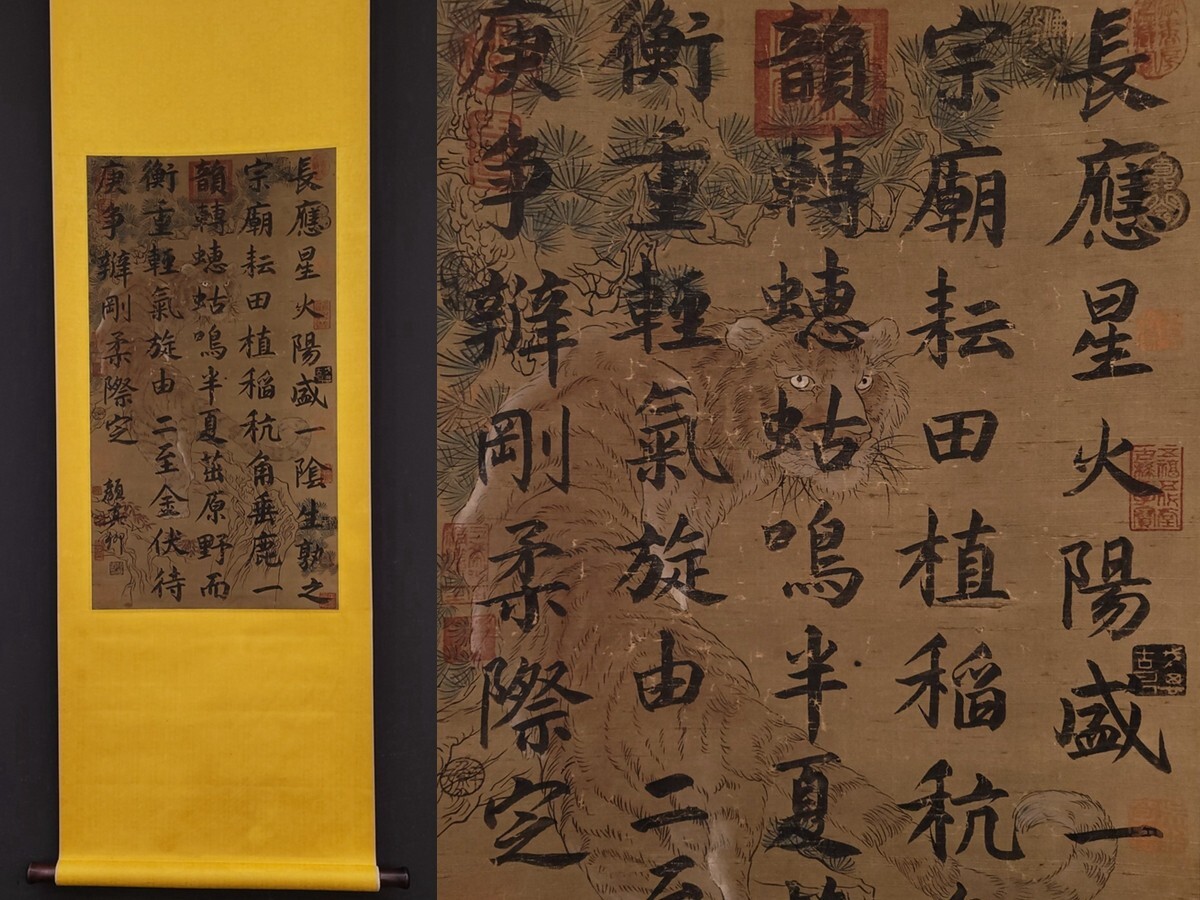 長應星火陽盛一陰生之
宗廟耘田植稲秔角垂鹿一
韻轉蟪蛄鳴半夏原野而
衡重輕氣旋由二至金伏待
庚争辦剛柔際定
顏真卿
長應星火陽盛一
宗廟耘田植稲秔
韻轉蟪蛄鳴半夏
衡重輕氣旋由二至
庚争辦剛柔際定